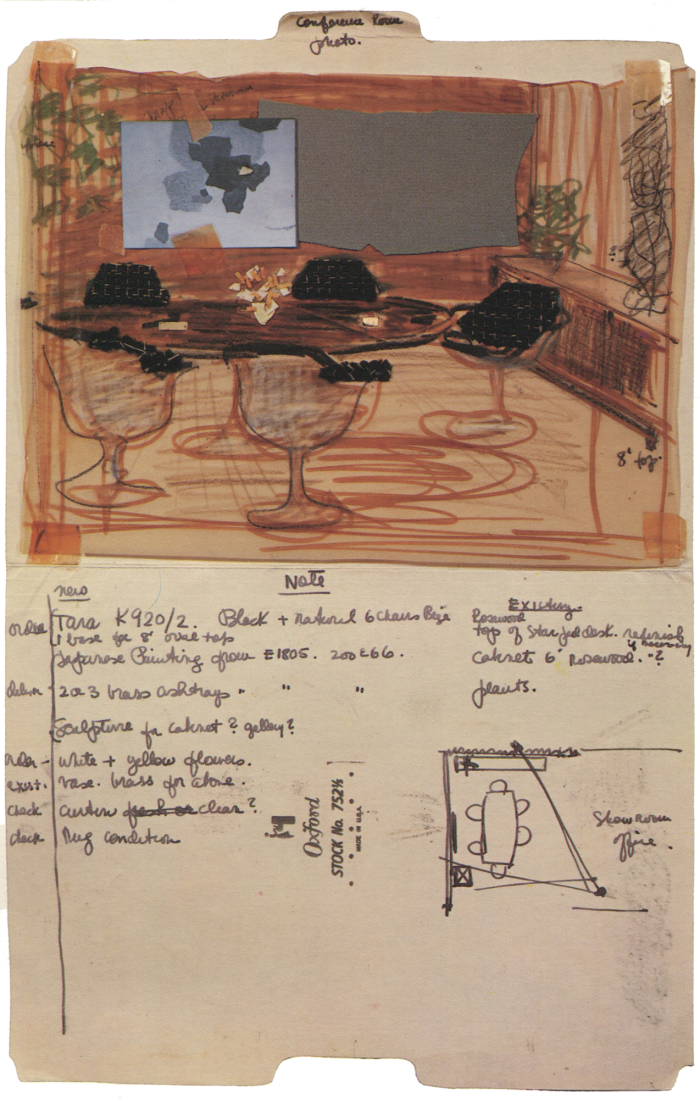 Conference Room
photo.
8' top.
Note
new
order
Tara K920/2. Black + natural 6 Chairs Beige
1 base for 8' oval top
Japanese Painting from E1805. 200 E66.
2 or 3 brass ashtrays " " "
Sculpture for cabnet? gallery?
order - white + yellow flowers.
exist. vase. brass for above.
check curtin fresh or clean?
check Rug condition
Existing.
Rosewood
top of Star jed desk. refinish
if necessary
Cabnets 6' Rosewood. ?
plants.
Oxford
STOCK No. 752 1/2
MADE IN U.S.A.
Showroom
office.